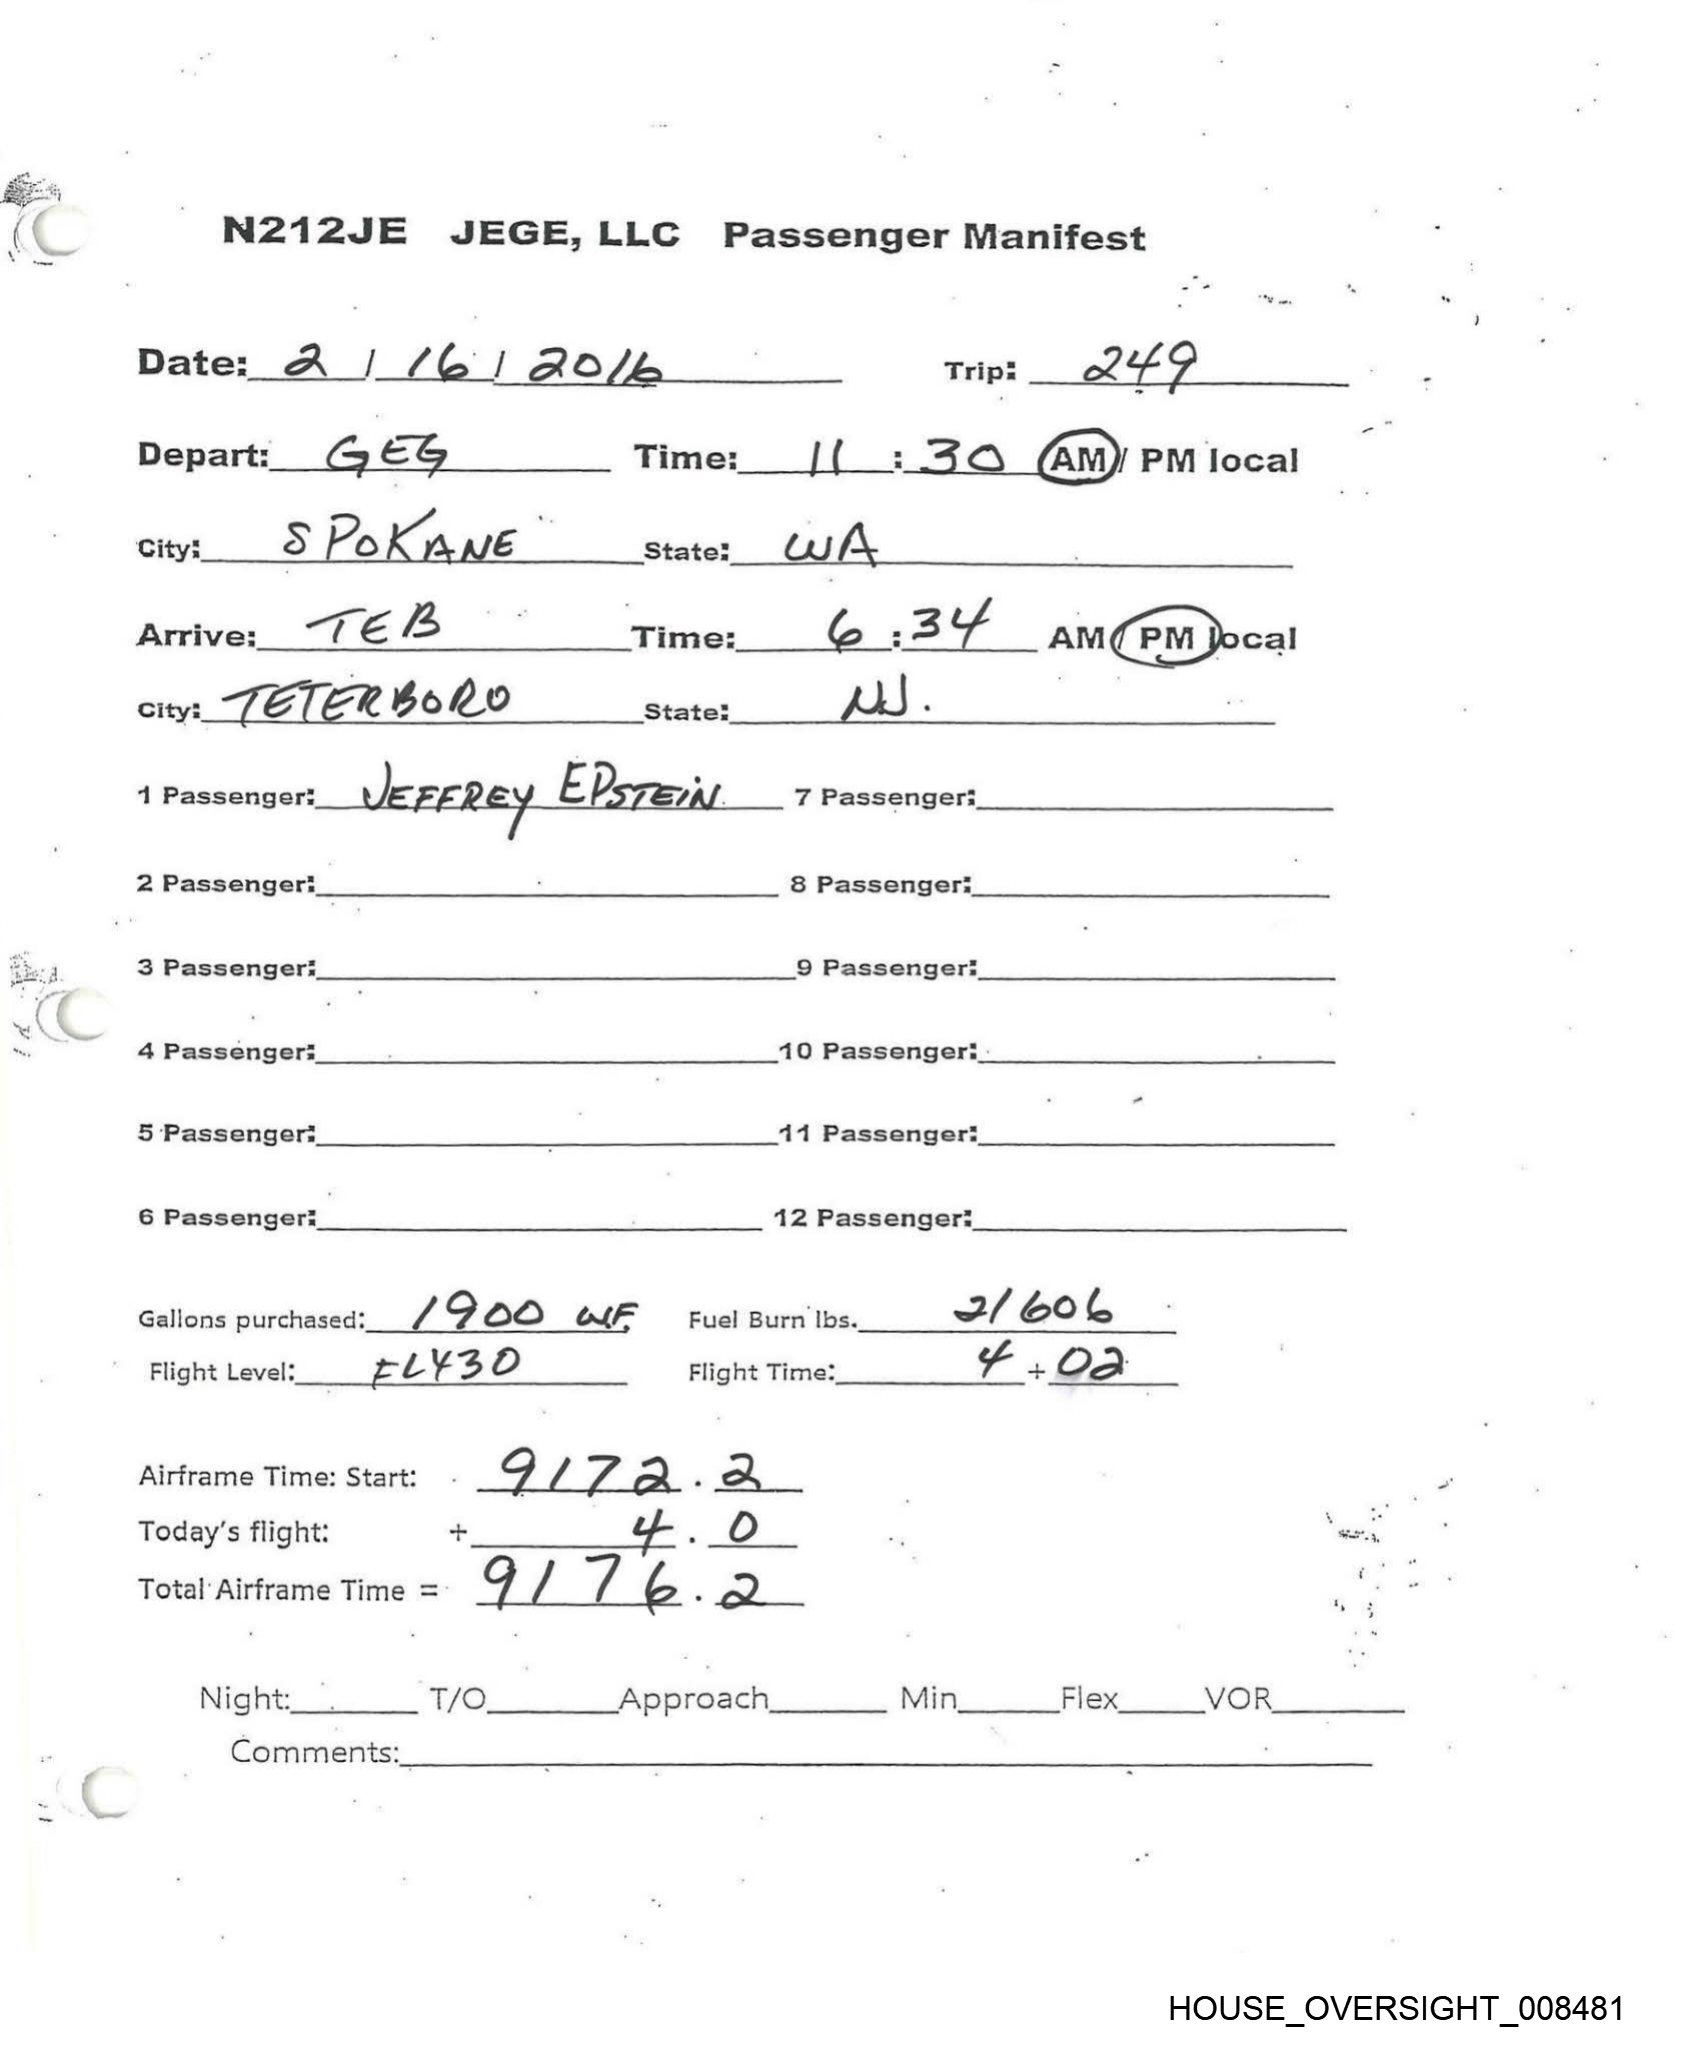 N212JE JEGE, LLC Passenger Manifest
Date: 2 / 16 / 2016 Trip: 249
Depart: GEG Time: 11 : 30 AM / PM local
City: SPOKANE State: WA
Arrive: TEB Time: 6 : 34 AM / PM local
City: TETERBORO State: NJ.
1 Passenger: JEFFREY EPSTEIN 7 Passenger:
2 Passenger: 8 Passenger:
3 Passenger: 9 Passenger:
4 Passenger: 10 Passenger:
5 Passenger: 11 Passenger:
6 Passenger: 12 Passenger:
Gallons purchased: 1900 W.F. Fuel Burn lbs. 21606
Flight Level: FL430 Flight Time: 4 + 02
Airframe Time: Start: 9172 . 2
Today's flight: + 4 . 0
Total Airframe Time = 9176 . 2
Night: T/O Approach Min Flex VOR
Comments:
HOUSE_OVERSIGHT_008481